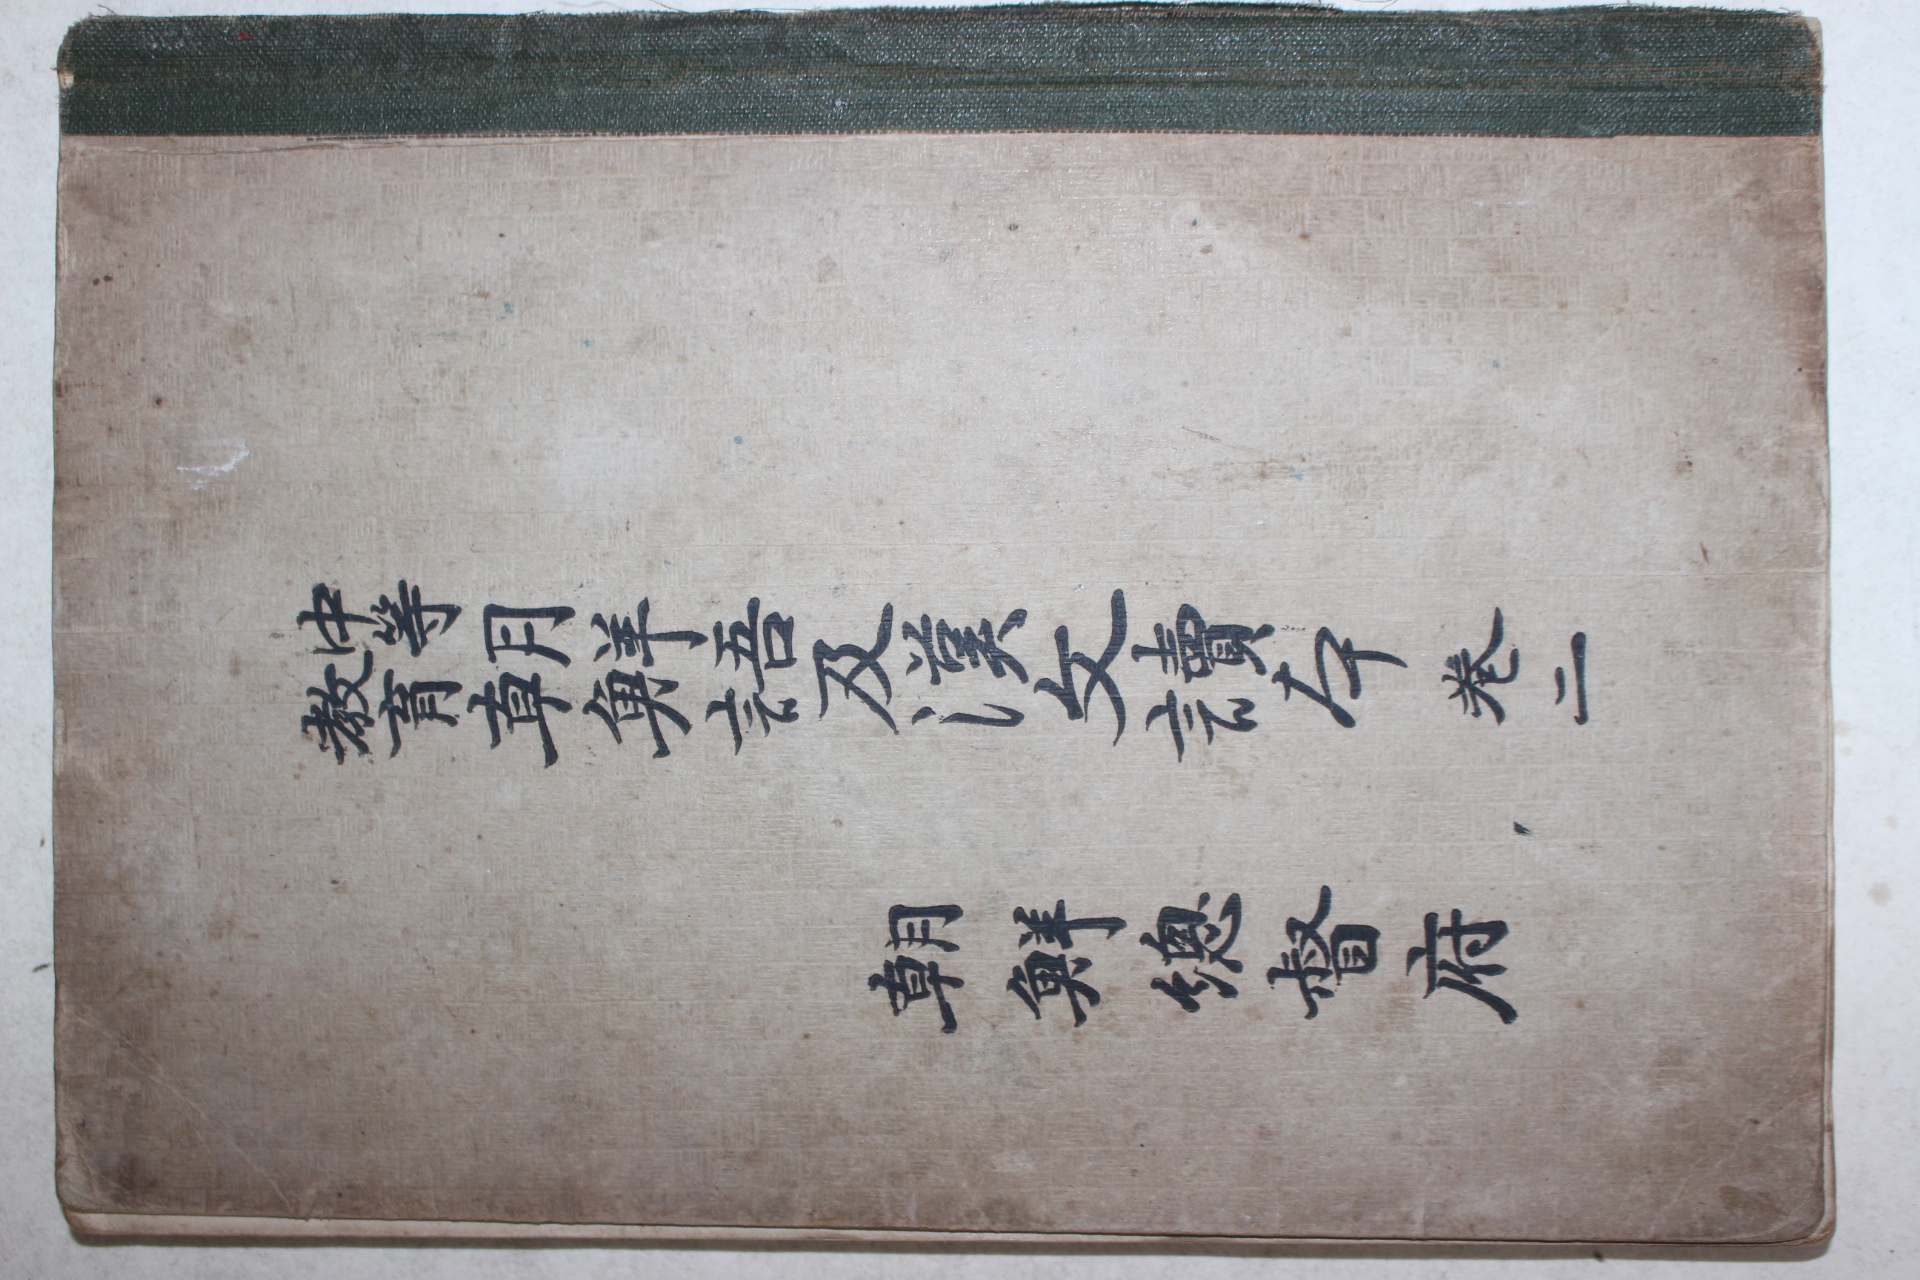 中等教育朝鮮語及漢文讀本 卷二
朝鮮總督府